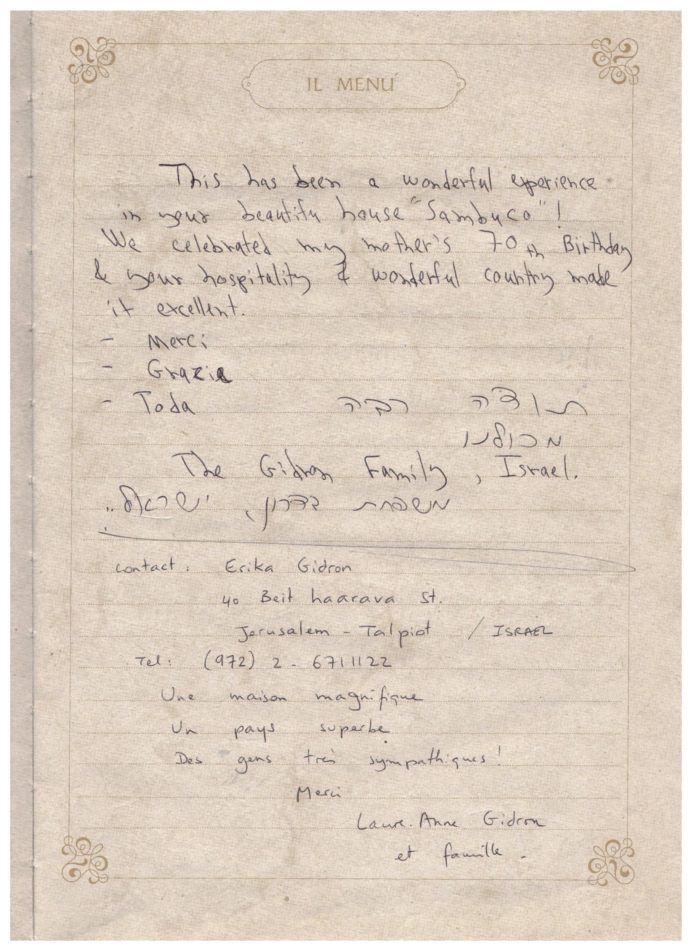 IL MENÚ
This has been a wonderful experience
in your beautifu house "Sambuco"!
We celebrated my mother's 70th Birthday
& your hospitality & wonderful country made
it excellent.
- Merci
- Grazie
- Toda תודה רביה
מכולנו
The Gidron Family, Israel.
משפחת גדרון, ישראל..
contact: Erika Gidron
40 Beit haarava St.
Jerusalem - Talpiot / ISRAEL
Tel: (972) 2. 6711122
Une maison magnifique
Un pays superbe
Des gens très sympathiques!
Merci
Laure.Anne Gidron
et famille.